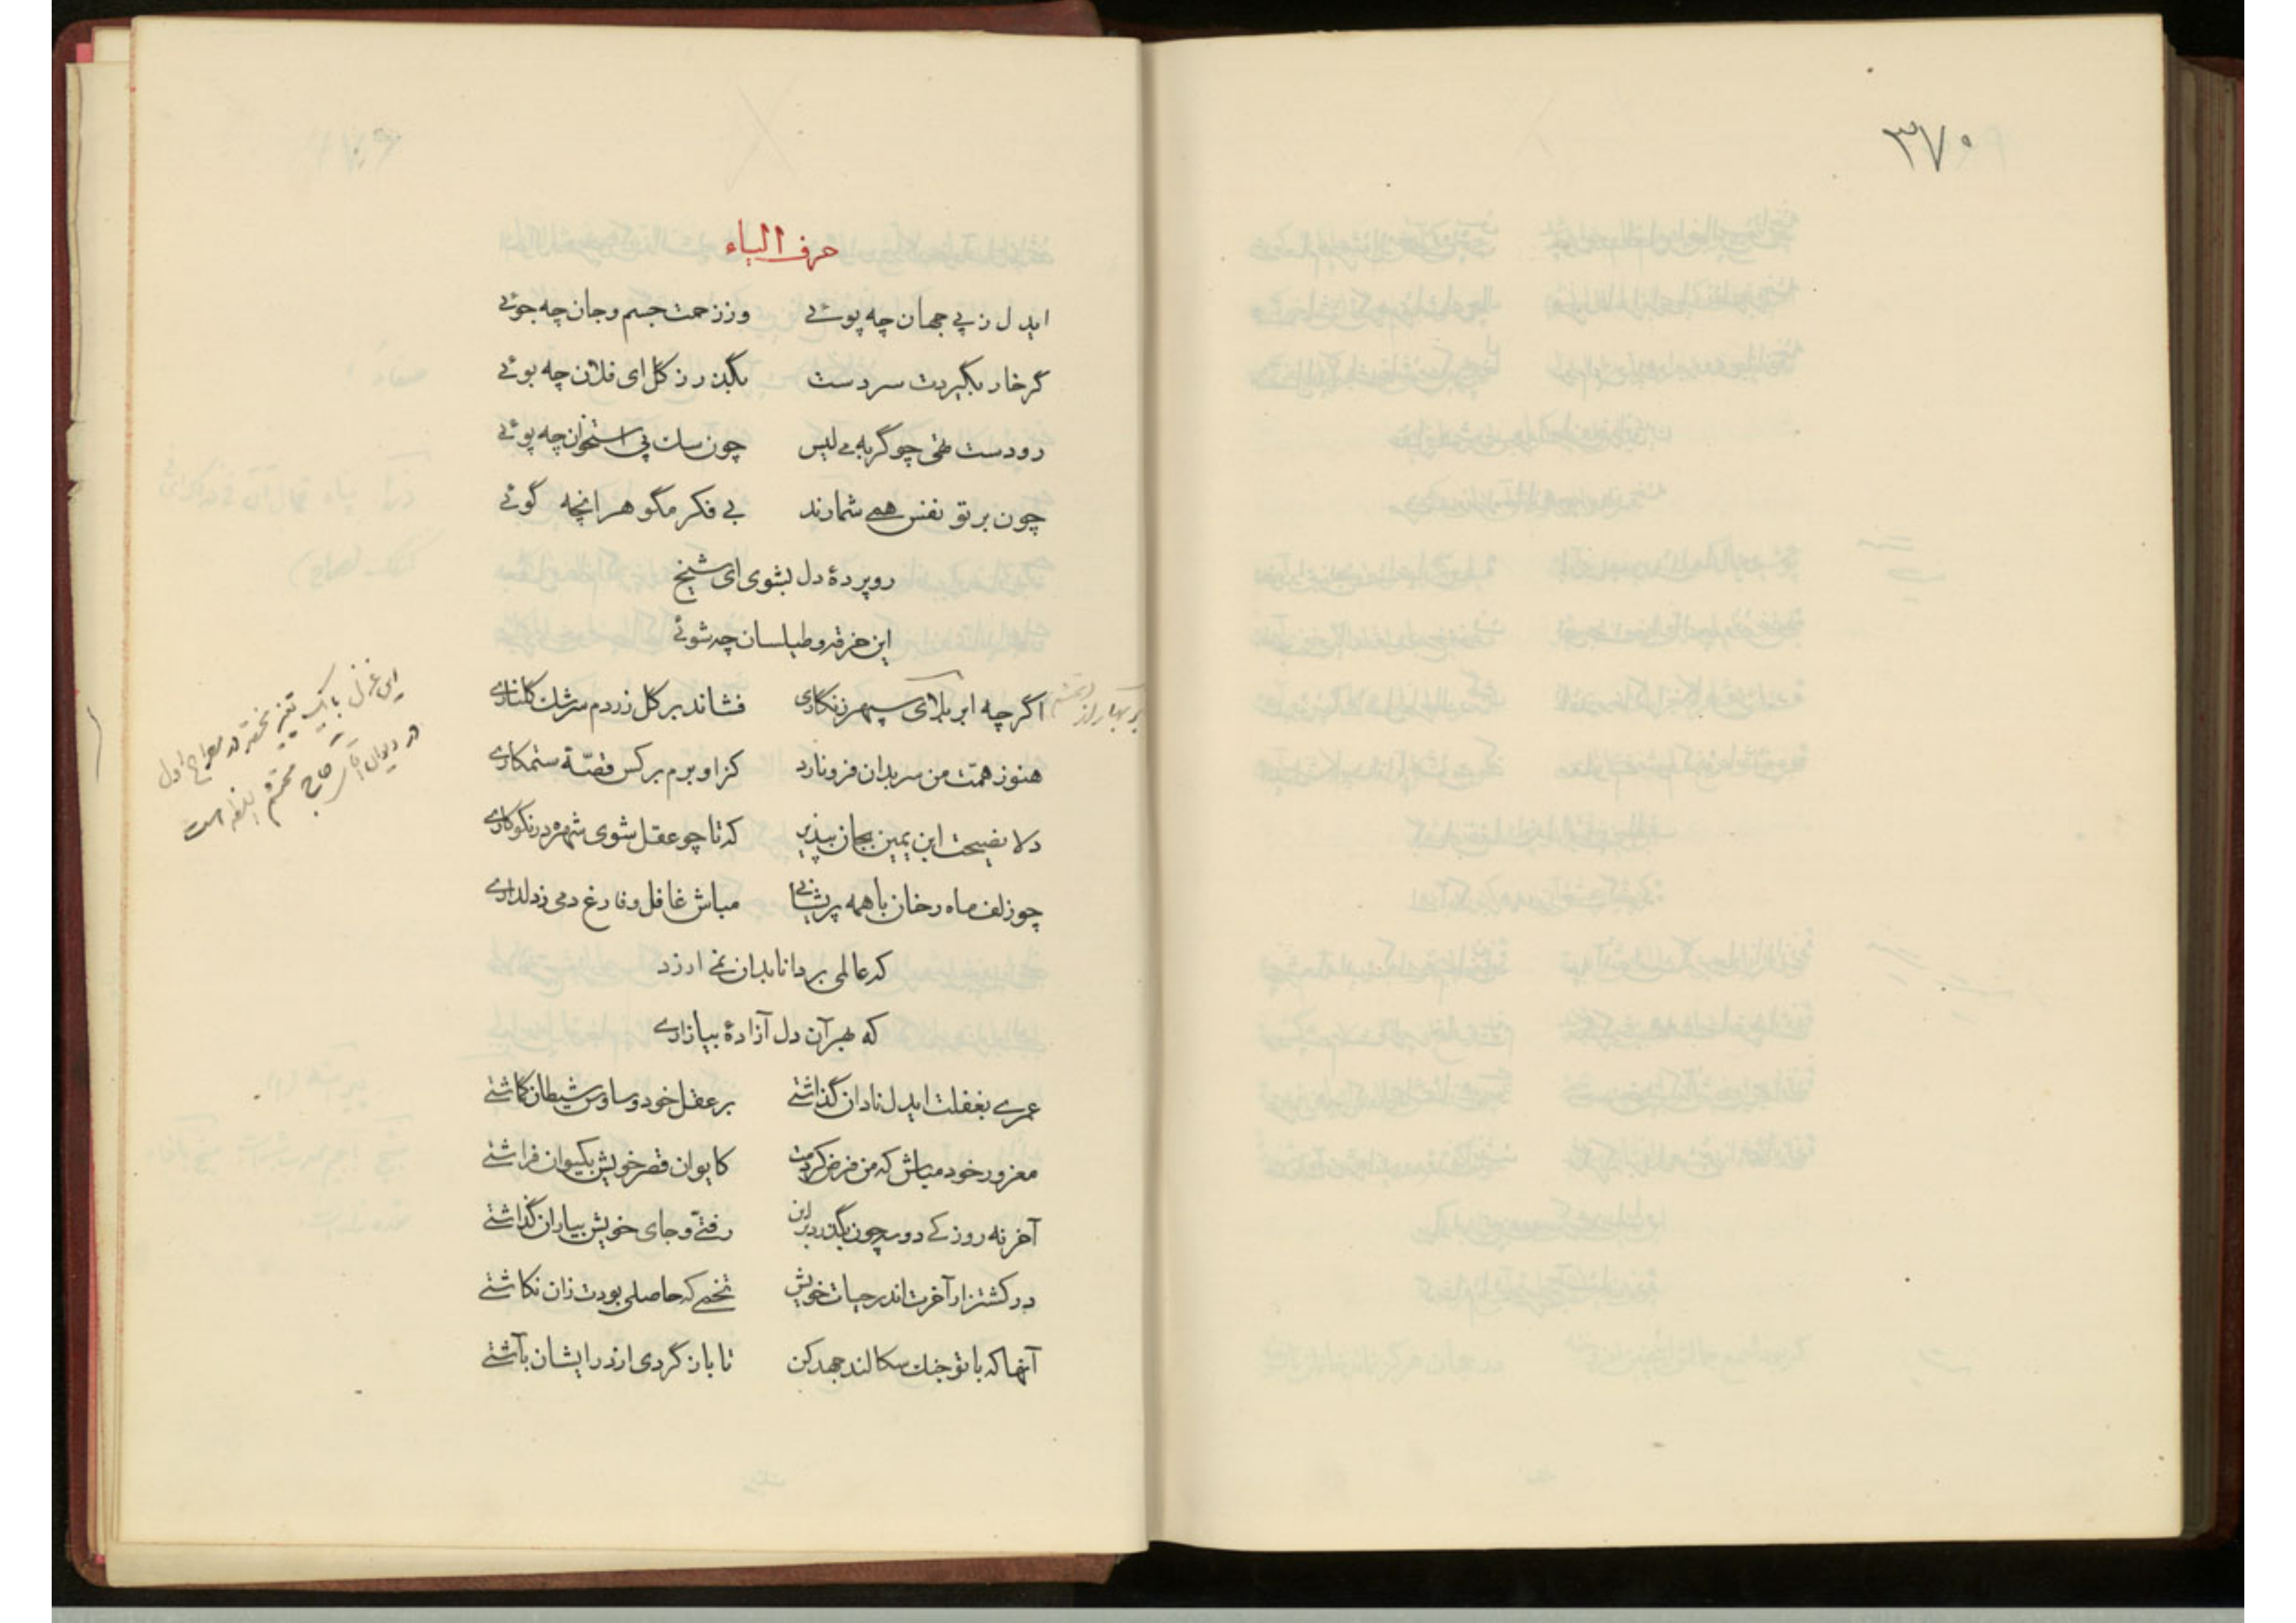 ۳۷۰
حرف الیاء
ایدل ز پی جهان چه پوئی وز زحمت جسم و جان چه جوئی
گر خار بگیردت سر دست بگذر ز گل ای فلان چه بوئی
رو دست تهی چو گربه می لیس چون سگ پی استخوان چه پوئی
چون بر تو نفس همی شمارند بی فکر مگو هر انچه گوئی
رو پردهٔ دل بشوی ای شیخ
این خرقه و طیلسان چه شوئی
اگر چه ابر بلای سپهر زنگاری فشاند بر گل زردم سرشک گلناری
هنوز همت من سر بدان فرو نارد کز او برم بر کس قصّهٔ ستمکاری
دلا نصیحت ابن یمین بجان بپذیر که تا چو عقل شوی شهره در نکوکاری
چو زلف ماه رخان با همه پریشانی مباش غافل و فارغ دمی ز دلداری
که عالمی بر دانا بدان نمی ارزد
که بهر آن دل آزادهٔ بیازاری
این غزل با یک تغییر مختصر در مصراع اول
در دیوان محتشم
عمری بغفلت ایدل نادان گذاشتی بر عقل خود وساوس شیطان گماشتی
مغرور خود مباش که من فرض کردمت کایوان قصر خویش بکیوان فراشتی
آخر نه روزکی دو سه چون بگذرد بر این رفتیّ و جای خویش بیاران گذاشتی
در کشتزار آخرت اندر حیات خویش تخمی که حاصلی بودت زان نکاشتی
آنها که با تو جنک سکالند جهد کن تا باز گردی از در ایشان بآشتی